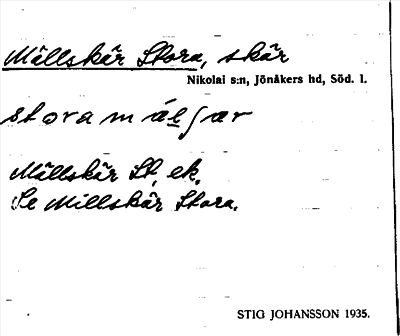 Mällskär Stora, skär
Nikolai s:n, Jönåkers hd, Söd. l.
Mällskär St, ek.
Se Millskär Stora.
STIG JOHANSSON 1935.